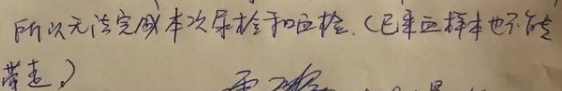 所以无法完成本次尿检和血检.(已采血样本也不能
带走.)